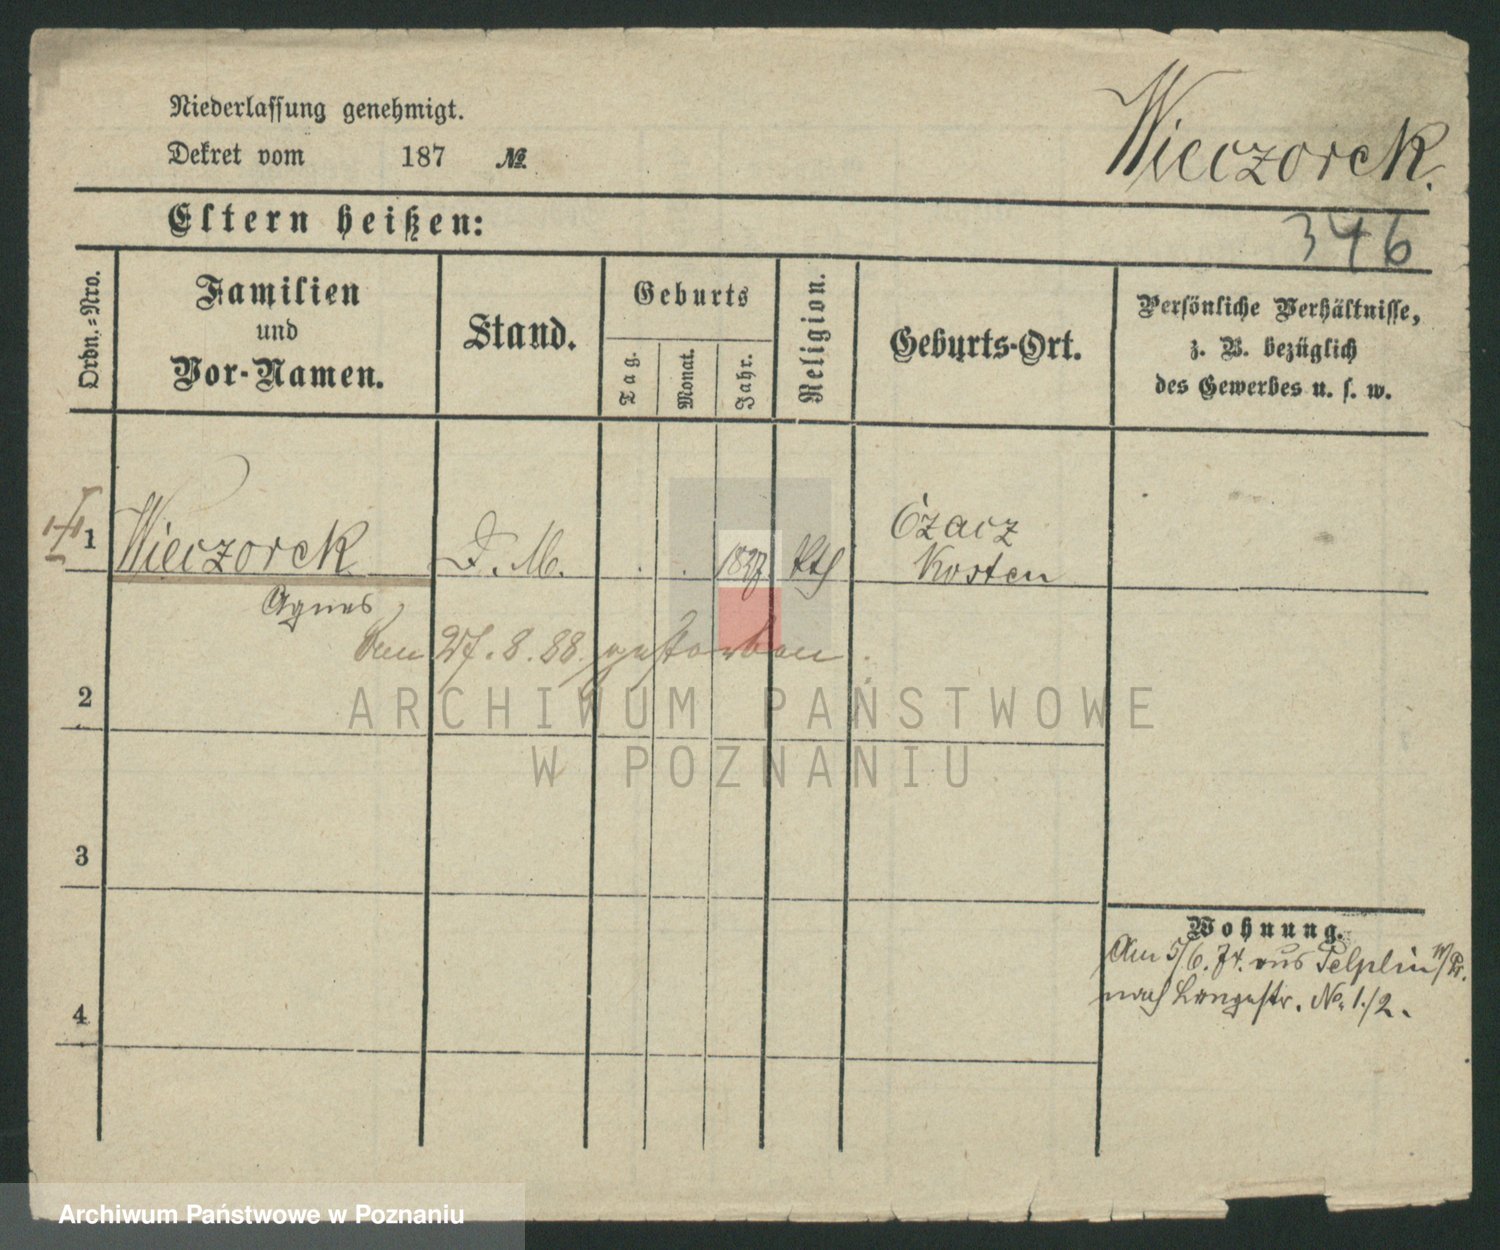 Niederlassung genehmigt.
Dekret vom 187 №
Wieczorek.
Eltern heißen:
346
Ordn.-Nro.
Familien
und
Vor-Namen.
Stand.
Geburts
Tag.
Monat.
Jahr.
Religion.
Geburts-Ort.
Persönliche Verhältnisse,
z. B. bezüglich
des Gewerbes u. s. w.
1 Wieczorek D. M. . . 1837 kth Czacz
Kosten
Agnes
Am 27. 8. 88. gestorben.
2
ARCHIWUM PAŃSTWOWE
W POZNANIU
3
Wohnung.
Am 5/6. 74. aus Pelplin W/Pr.
nach Langestr. No. 1./2.
4
Archiwum Państwowe w Poznaniu